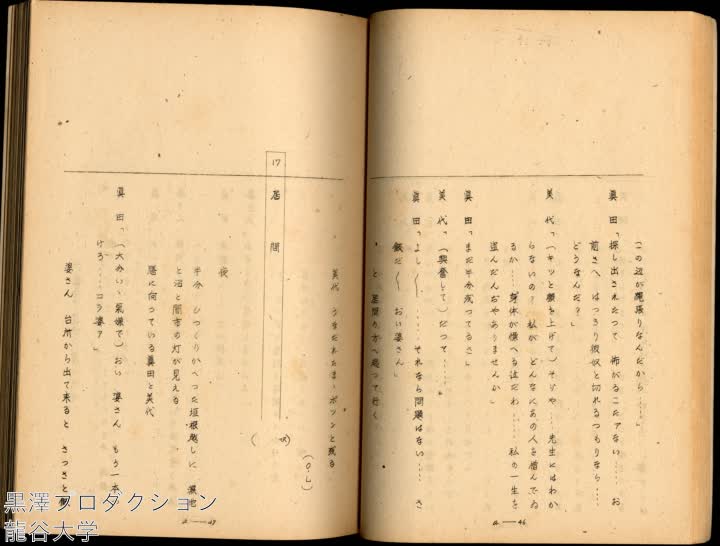 この辺が縄張りなんだから……」
眞田「探し出されたって 怖がるこたァない…… お
前さへ はっきり彼奴と切れるつもりなら……
どうなんだ?」
美代「(キッと顔を上げて)そりや……先生にはわか
らないの? 私が どんなにあの人を憎んでゐ
るか……身体が慄へる位だわ…… 私の一生を
盗んだんぢやありませんか」
眞田「まだ半分残ってるさ」
美代「(興奮して)だって……
眞田「よし〳〵…… それなら問題はない…… さ
飯だ〳〵 おい婆さん」
と 居間の方へ起って行く
a—46
美代 うなだれたまゝポツンと残る
(O・L)
17 居間
夜
半分 ひっくりかへった垣根越しに
と沼と闇市の灯が見える
膳に向っている眞田と美代
眞田「(大分いゝ氣嫌で)おい 婆さん もう一本
けろ……コラ婆ァ」
婆さん 台所から出て來ると さっさと
a—47
黒澤プロダクション
龍谷大学